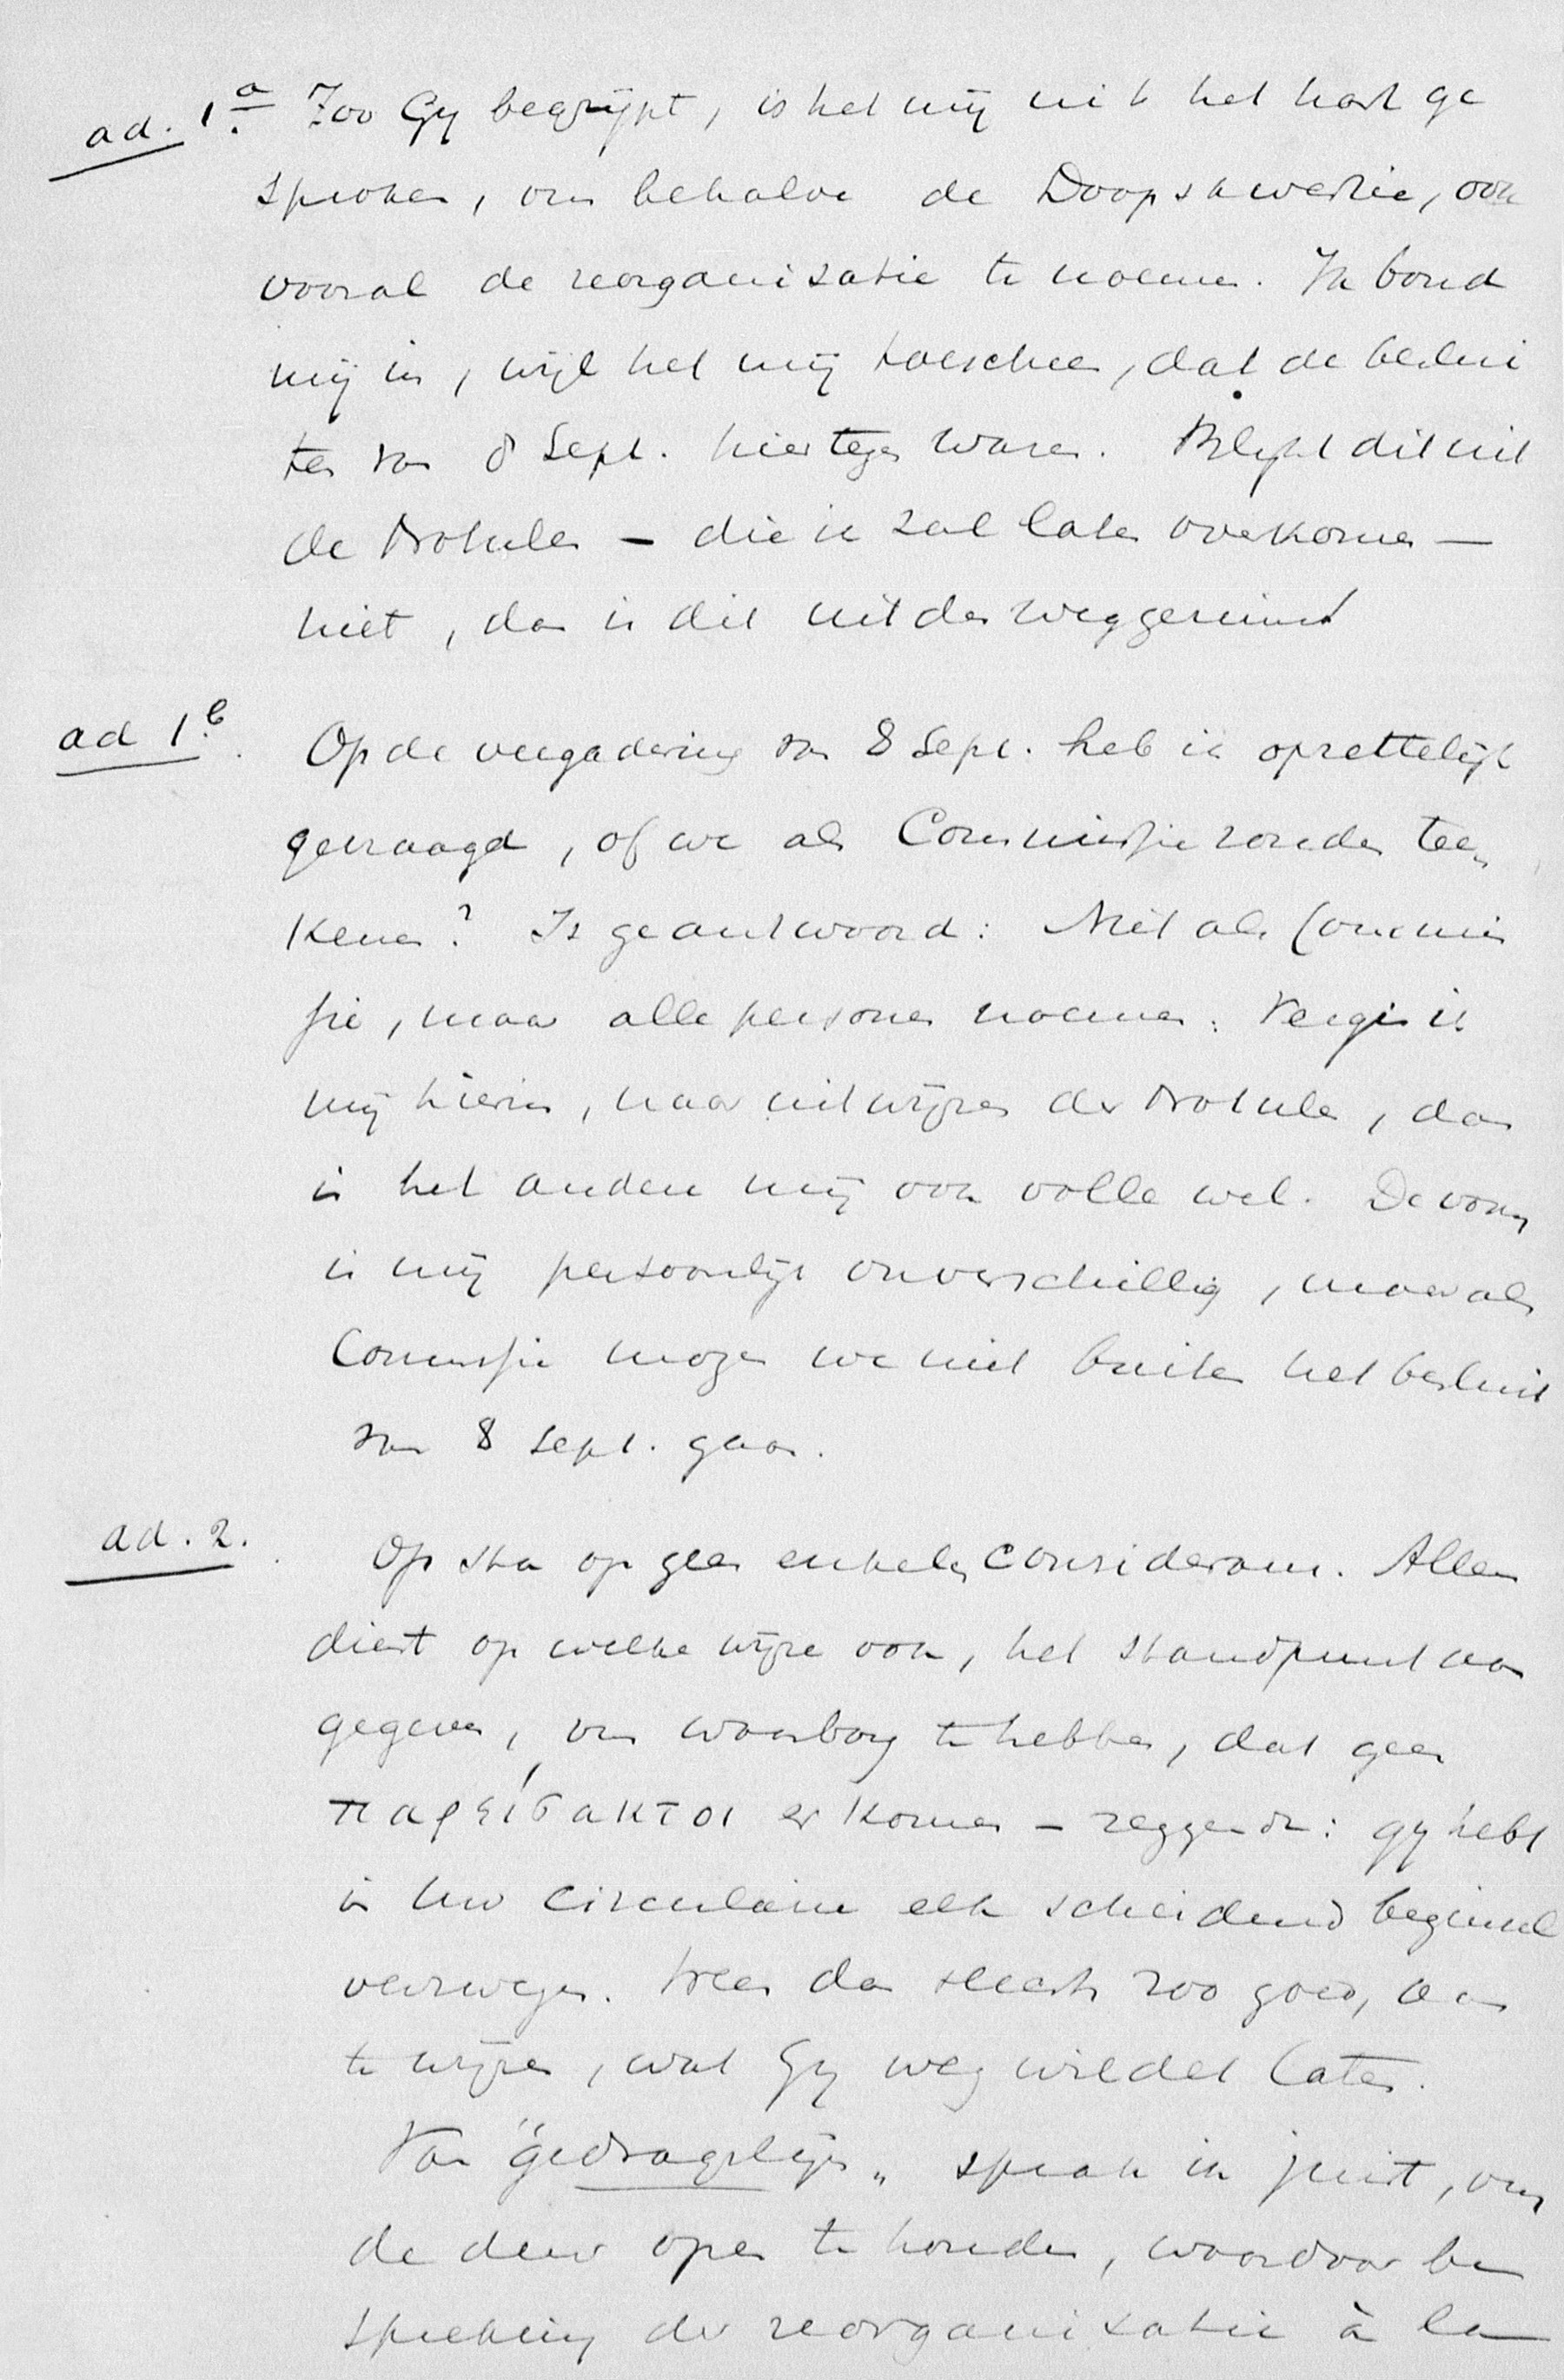 ad. 1.a Zoo Gy begrijpt, is het mij uit het hart ge
sproken, om behalve de Doopskwestie, ook
vooral de reorganisatie te noemen. Ik bond
mij in, wijl het mij toescheen, dat de beslui
ten van 8 Sept. hiertegen waren. Blijkt dit uit
de Notulen – die ik zal laten overkomen –
niet, dan is dit uit den weg geruimd
ad 1.b. Op de vergadering van 8 Sept. heb ik opzettelijk
gevraagd, of we als Commissie zouden tee
kenen? Is geantwoord: Niet als Commis
sie, maar alle personen noemen. Vergis ik
mij hierin, naar uitwijzen der Notulen, dan
is het andere mij ook volle wel. De vorm
is mij persoonlijk onverschillig, maar als
Commissie mogen we niet buiten het besluit
van 8 Sept. gaan.
ad. 2. Op sta op geen enkelen considerans. Alleen
dient op welke wijze ook, het standpunt aan
gegeven, om waarborg te hebben, dat geen
παρείσακτοι er komen – zeggende: gy hebt
in Uw circulaire elk scheidend beginsel
verzwegen. Wees dan slechts zoo goed, aan
te wijzen, wat Gy weg wildet laten.
Van "gedragslijn" sprak ik juist, om
de deur open te houden, waardoor be
spreking der reorganisatie à la